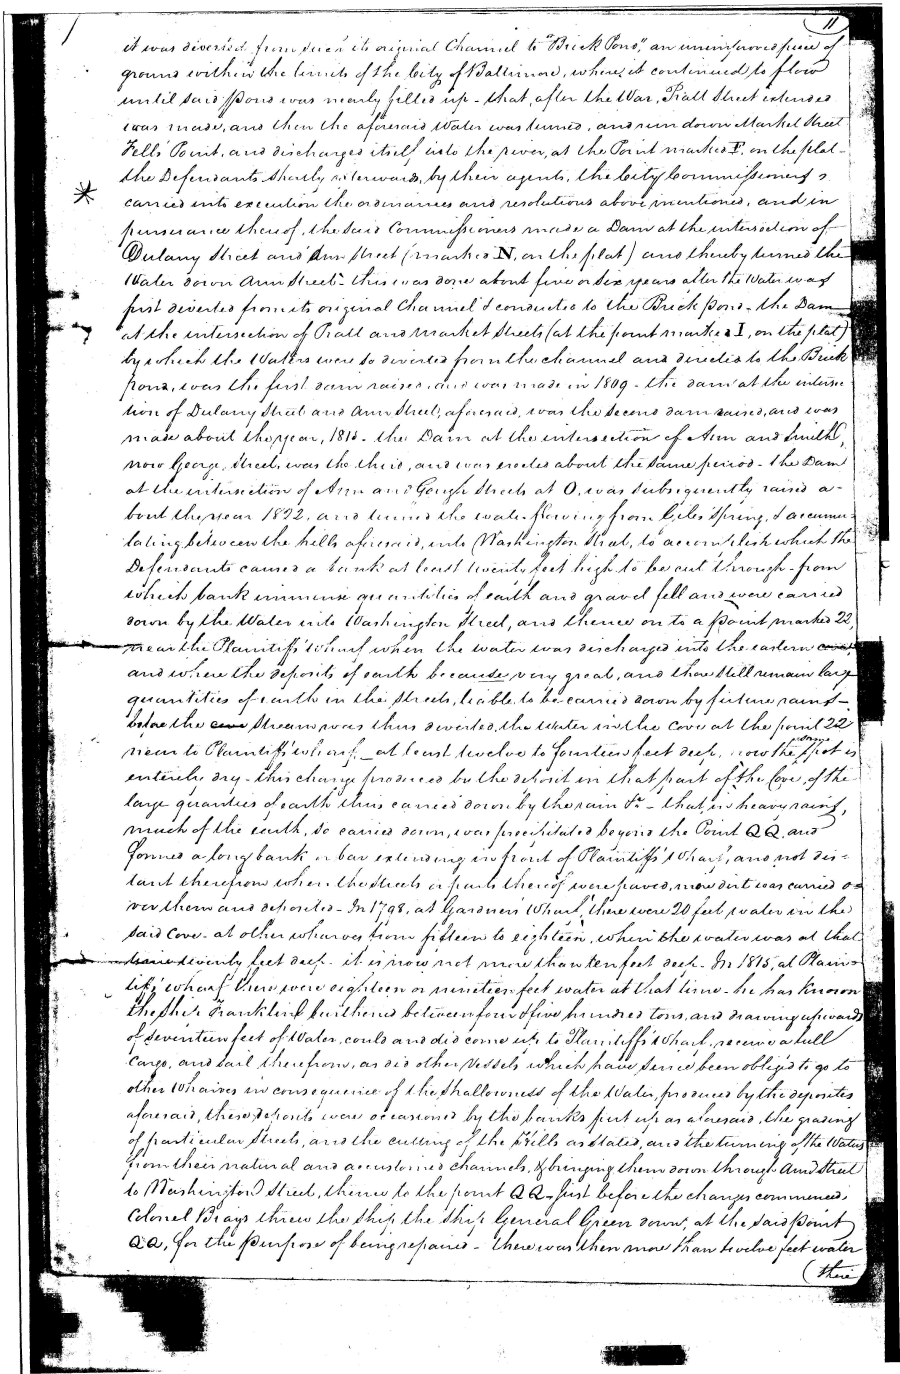 11
it was diverted from such its original Channel to "Brick Pond," an unimproved piece of
ground within the limits of the City of Baltimore, where it continued to flow
until said Pond was nearly filled up - that, after the War, Pratt Street extended
was made, and then the aforesaid Water was turned, and run down Market Street
Fells Point, and discharged itself into the river, at the Point marked F. on the plat -
the Defendants shortly afterwards, by their agents, the City Commissioners
carried into execution the ordinances and resolutions above mentioned, and in
pursuance thereof, the said Commissioners made a Dam at the intersection of
Dulany Street and Ann Street (marked N, on the plat) and thereby turned the
Water down Ann Street - this was done about five or six years after the Water was
first diverted from its original Channel & conducted to the Brick pond - the Dam
at the intersection of Pratt and Market Streets (at the point marked I, on the plat)
by which the Waters were so diverted from the channel and directed to the Brick
pond, was the first dam raised, and was made in 1809 - the dam at the intersec
tion of Dulany Street and Ann Street, aforesaid, was the second dam raised, and was
made about the year, 181 - the Dam at the intersection of Ann and Smith,
now George, Street, was the third, and was erected about the same period - the Dam
at the intersection of Ann and Gough Streets at O, was subsequently raised a-
bout the year 1822, and turned the water flowing from Giles Spring, & accumu-
lating between the hills aforesaid, into Washington Street, to accomplish which the
Defendants caused a bank at least twenty feet high to be cut through - from
which bank immense quantities of earth and gravel fell and were carried
down by the Water into Washington Street, and thence on to a Point marked 22,
near the Plaintiffs' wharf when the water was discharged into the eastern
and where the deposits of earth became very great, and there still remain large
quantities of earth in the streets, liable to be carried down by future rains -
before the stream was thus diverted, the Water in the Cove at the point 22
near to Plaintiffs' wharf - at least twelve to fourteen feet deep, now the same spot is
entirely dry - this change produced by the deposit in that part of the Cove, of the
large quantities of earth thus carried down by the rain &c - that, in heavy rains,
much of the earth, so carried down, was precipitated beyond the Point QQ. and
formed a long bank or bar extending in front of Plaintiffs' Wharf, and not dis-
tant therefrom when the streets or parts thereof were paved, more dirt was carried o=
ver them and deposited - In 1798, at Gardners' Wharf, there were 20 feet water in the
said Cove - at other wharves from fifteen to eighteen, when the water was at that
time twenty feet deep - it is now not more than ten feet deep - In 1815, at Plain=
tiffs' wharf there were eighteen or nineteen feet water at that time - he has known
the Ship Franklin burthened between four & five hundred tons, and drawing upwards
of seventeen feet of Water, could and did come up to Plaintiffs' Wharf, receive a full
Cargo, and sail therefrom, as did other Vessels which have since been obliged to go to
other Wharves in consequence of the shallowness of the Water, produced by the deposites
aforesaid, these deposits were occasioned by the banks put up as aforesaid, the grading
of particular streets, and the cutting of the Hills as stated, and the turning of the Waters
from their natural and accustomed channels, & bringing them down through Ann Street
to Washington Street, thence to the point QQ - just before the changes commenced,
Colonel Biays threw the ship, the ship General Green down, at the said point
QQ, for the purpose of being repaired - there was then more than twelve feet water
(there